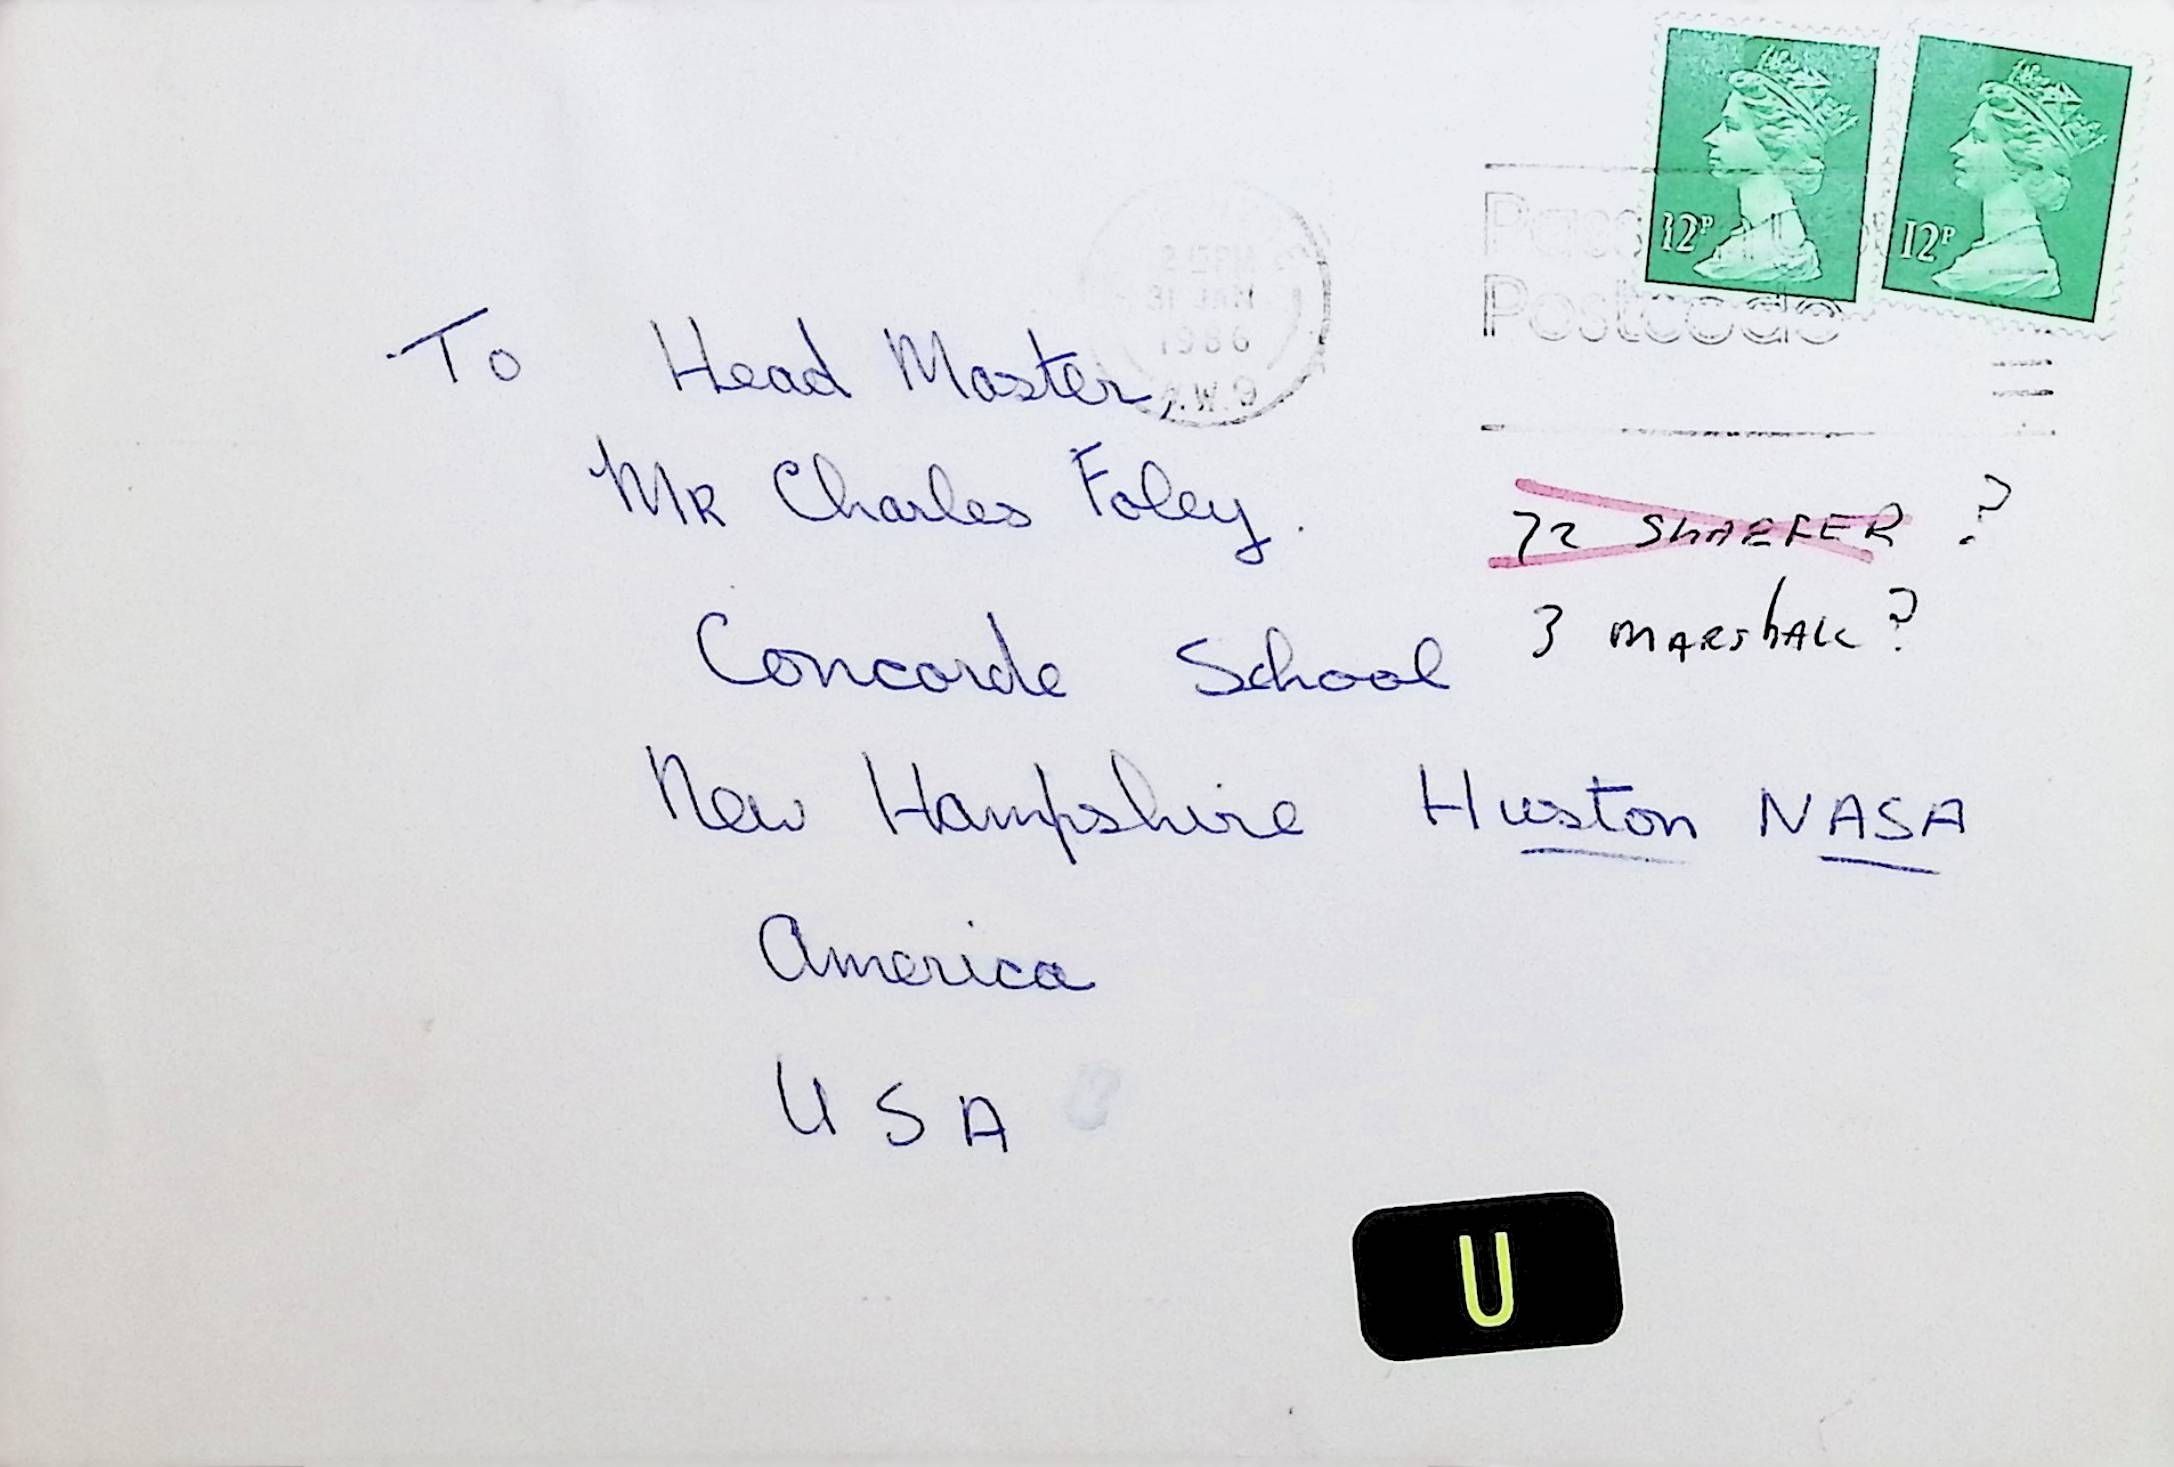 12P 12P
Postcode
1986
To Head Master,
Mr Charles Foley.
72 SHAEFER ?
3 MARShALL ?
Concorde School
New Hampshire Huston NASA
America
USA
U